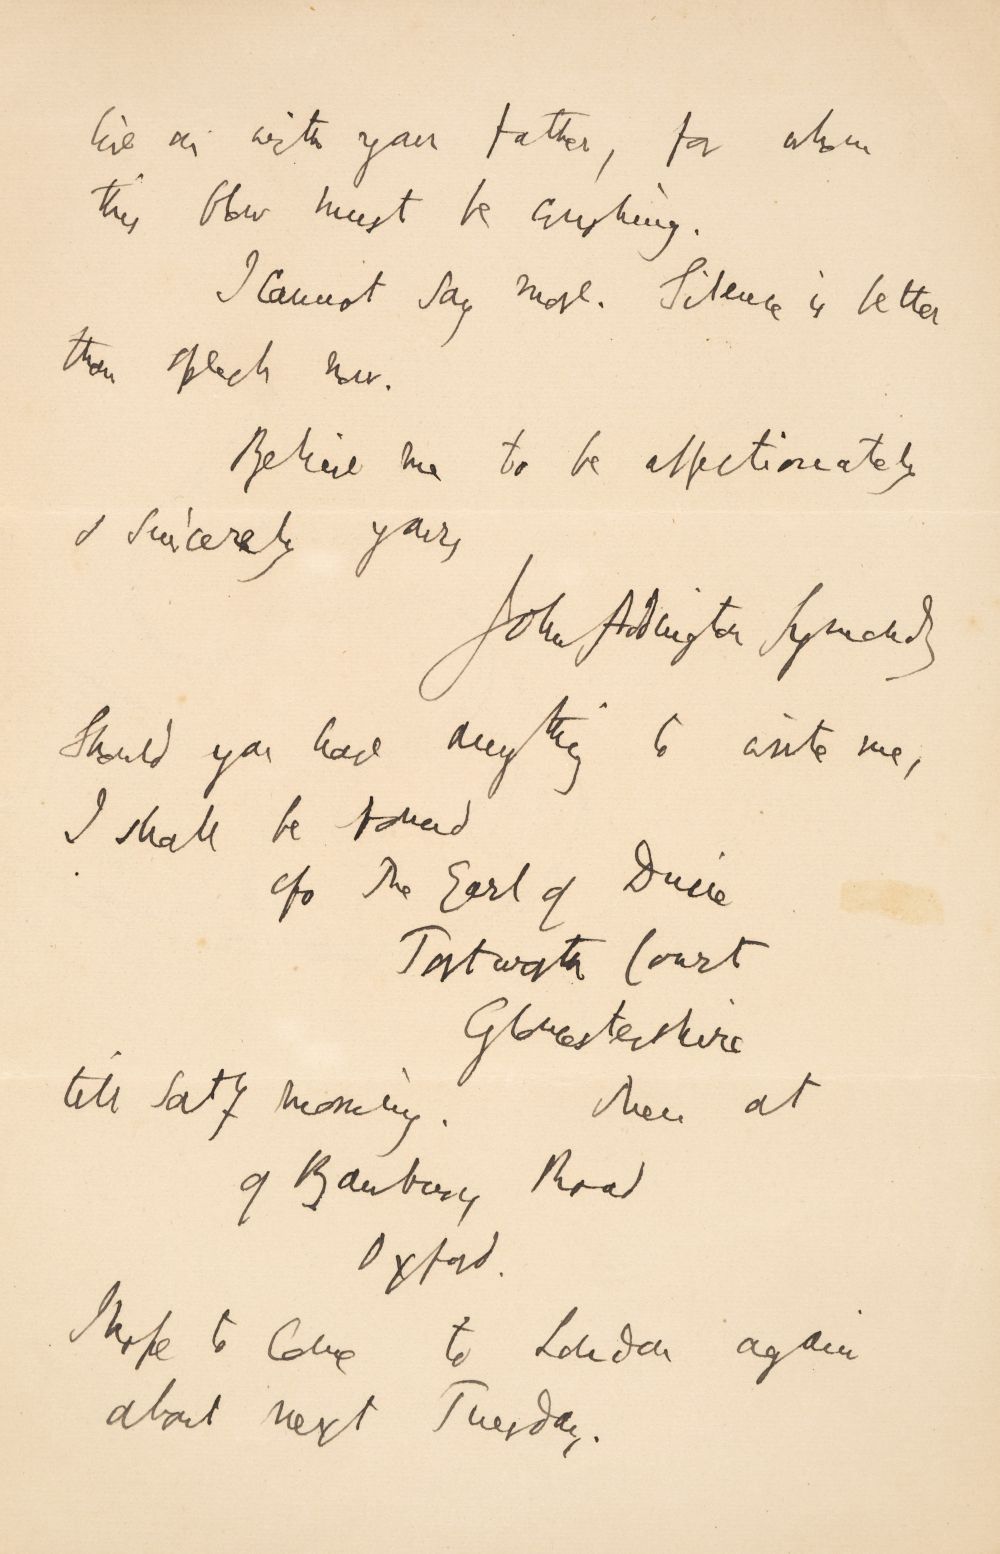 live on with your father, for whom
this blow must be crushing.
I cannot say more. Silence is better
than speech now.
Believe me to be affectionately
& sincerely yours
John Addington Symonds
Should you have anything to write me,
I shall be found
c/o The Earl of Ducie
Tortworth Court
Gloucestershire
till Satʸ morning. Then at
9 Banbury Road
Oxford.
I hope to come to London again
about next Tuesday.